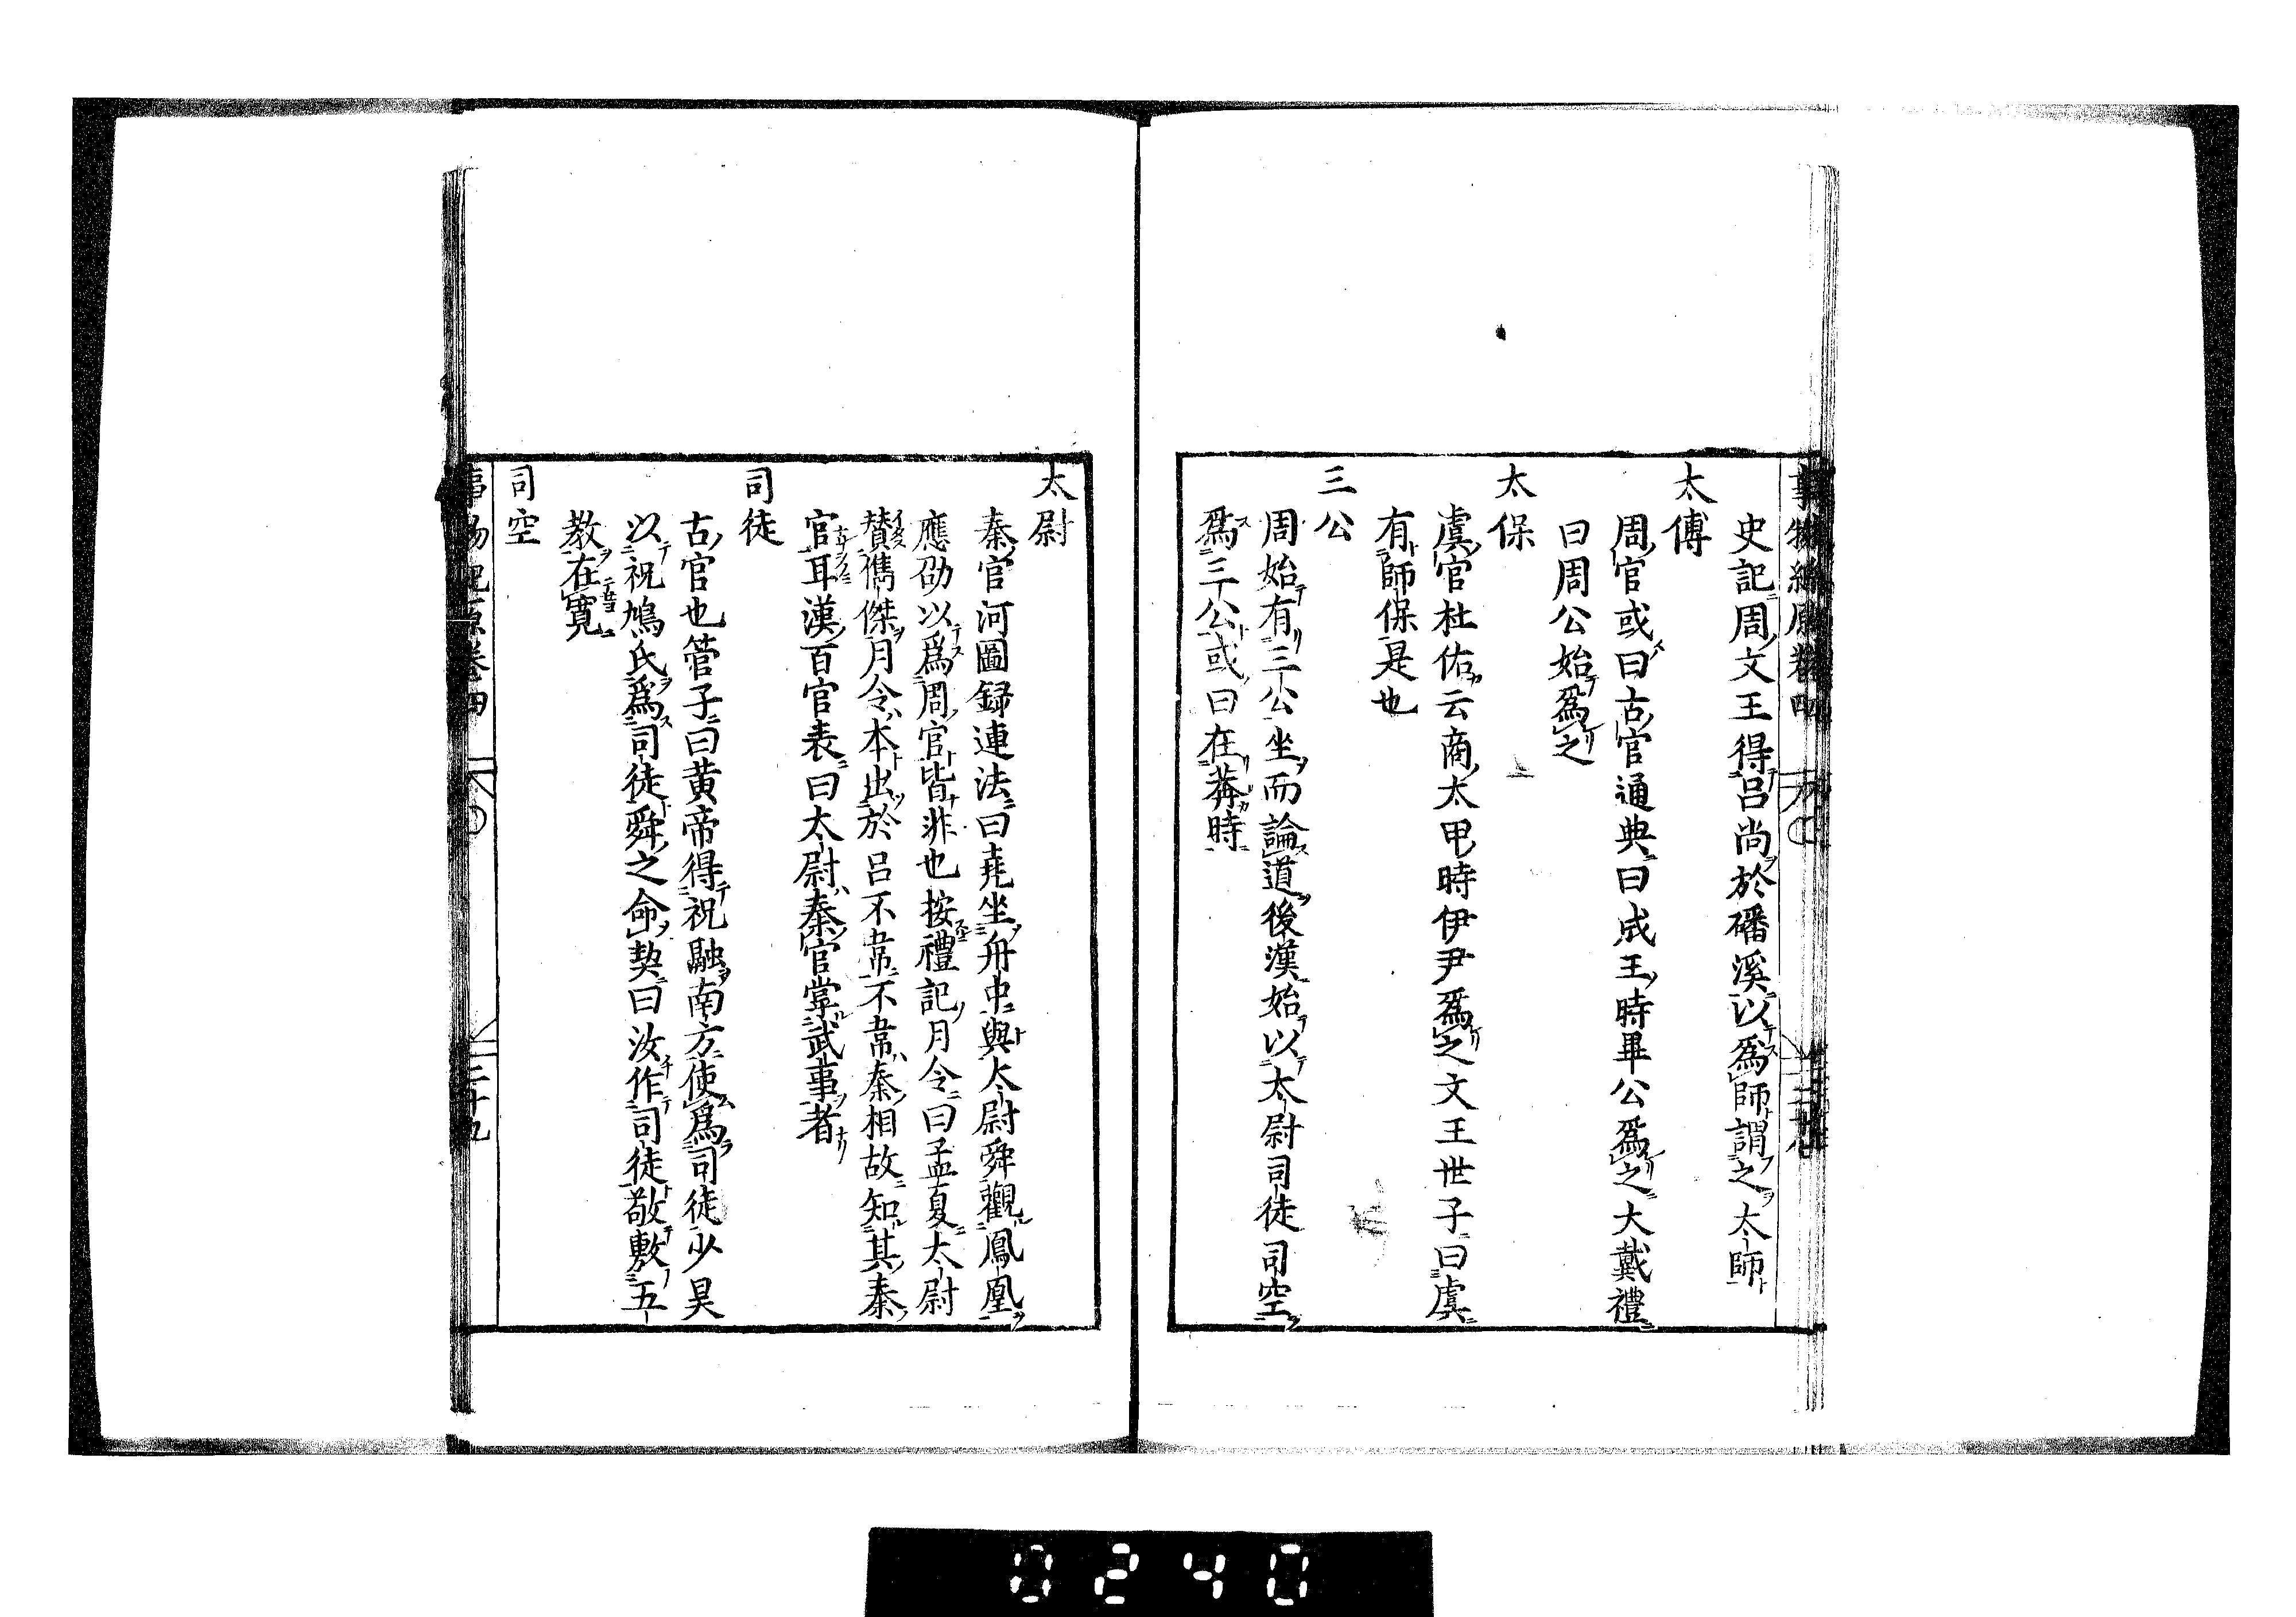 史記周文王得呂尚於磻溪以爲師謂之太師
太傅
周官或曰古官通典曰成王時畢公爲之大戴禮
曰周公始爲之
太保
虞官杜佑云商太甲時伊尹爲之文王世子曰虞
有師保是也
三公
周始有三公坐而論道後漢始以太尉司徒司空
爲三公或曰在莽時
太尉
秦官河圖録連法曰堯坐舟中與太尉舜觀鳳凰
應劭以爲周官皆非也按禮記月令曰孟夏太尉
賛儁傑月令本出於呂不韋不韋秦相故知其秦
官耳漢百官表曰太尉秦官掌武事者
司徒
古官也管子曰黄帝得祝融南方使爲司徒少昊
以祝鳩氏爲司徒舜之命契曰汝作司徒敬敷五
教在寛
司空
0240